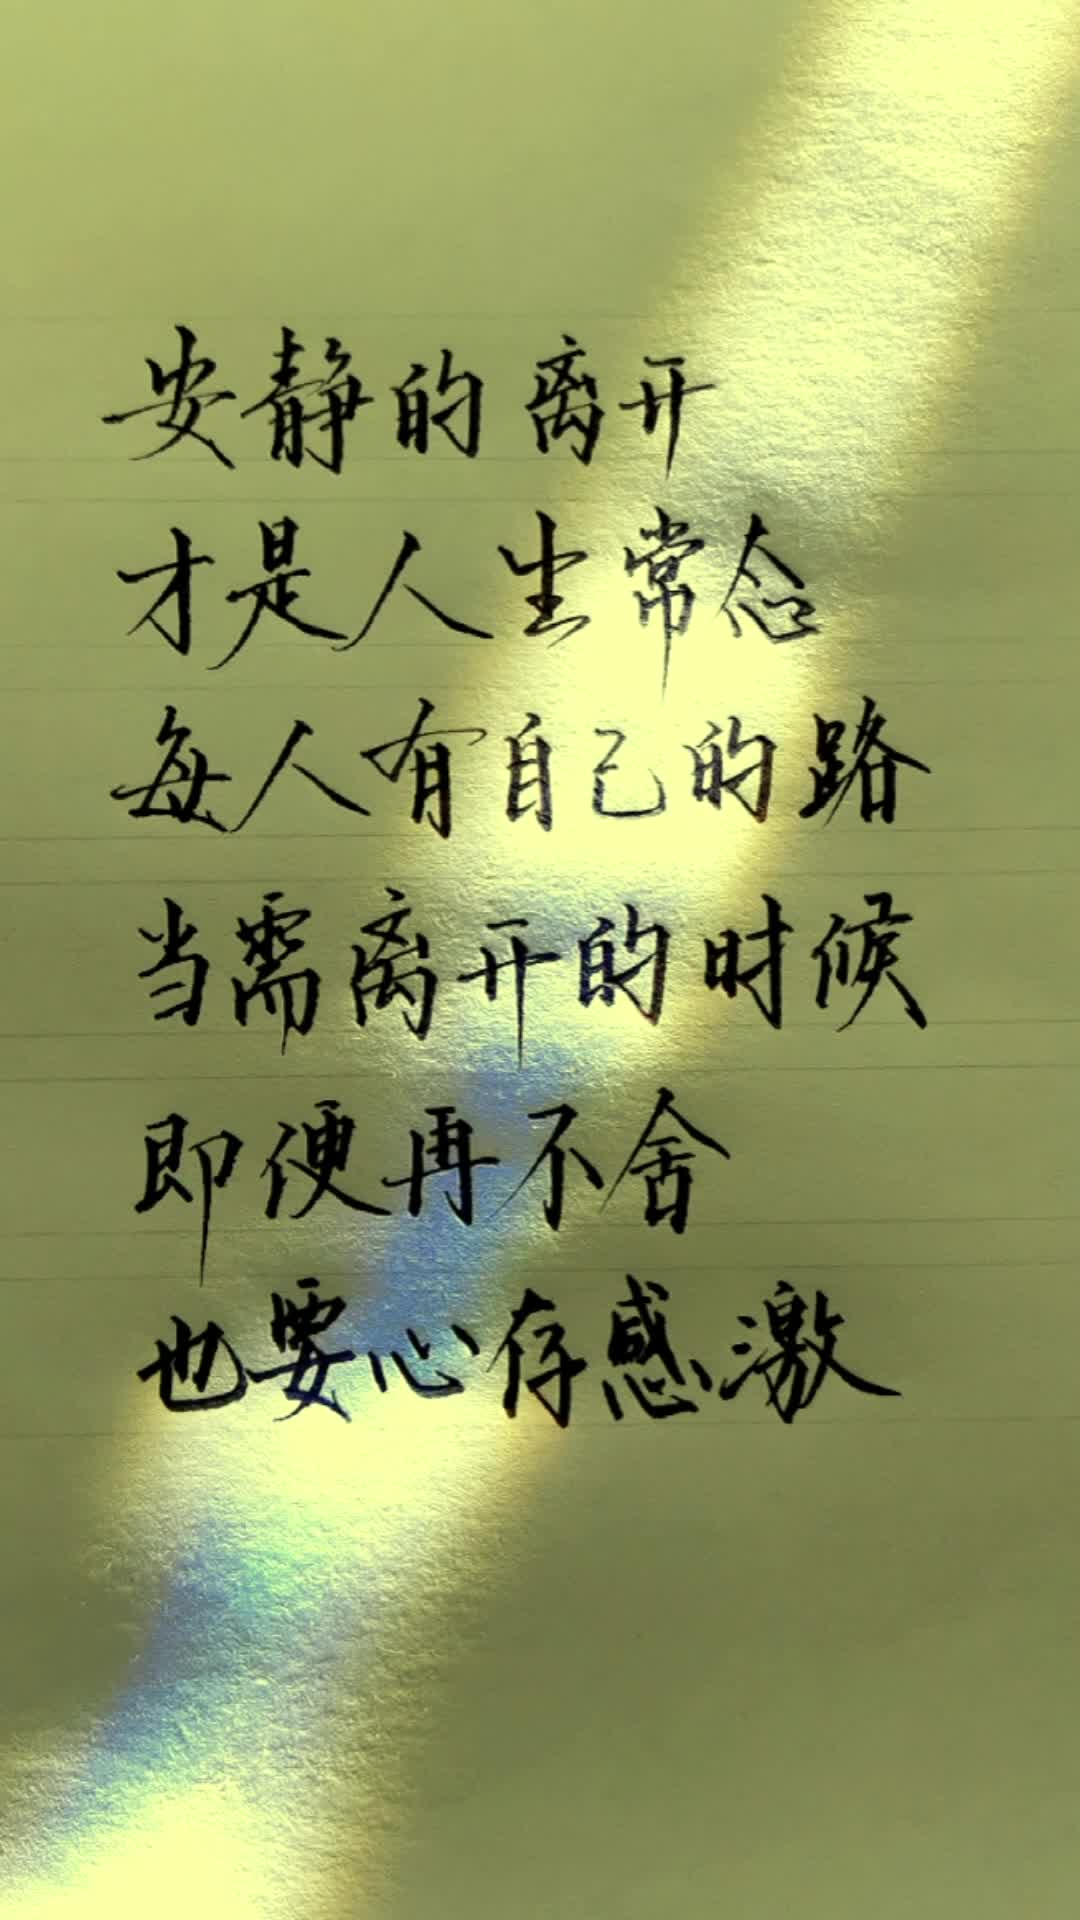 安静的离开
才是人生常态
每人有自己的路
当需离开的时候
即便再不舍
也要心存感激